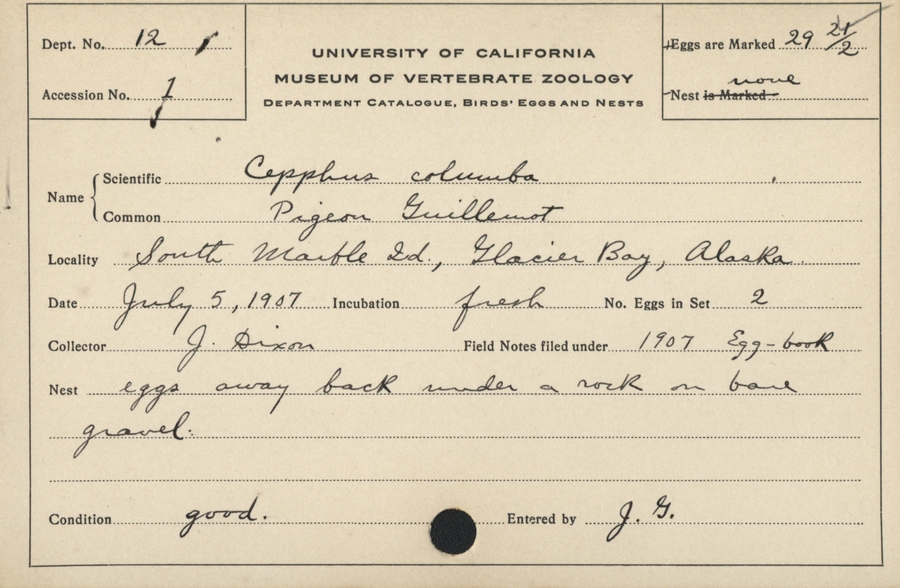 Dept. No. 12
Accession No. 1
UNIVERSITY OF CALIFORNIA
MUSEUM OF VERTEBRATE ZOOLOGY
DEPARTMENT CATALOGUE, BIRDS' EGGS AND NESTS
Eggs are Marked 29 21/2
none
Nest is Marked
Name
Scientific Cepphus columba
Common Pigeon Guillemot
Locality South Marble Id., Glacier Bay, Alaska
Date July 5, 1907 Incubation fresh No. Eggs in Set 2
Collector J. Dixon Field Notes filed under 1907 Egg-book
Nest eggs away back under a rock on bare
gravel.
Condition good. Entered by J. G.